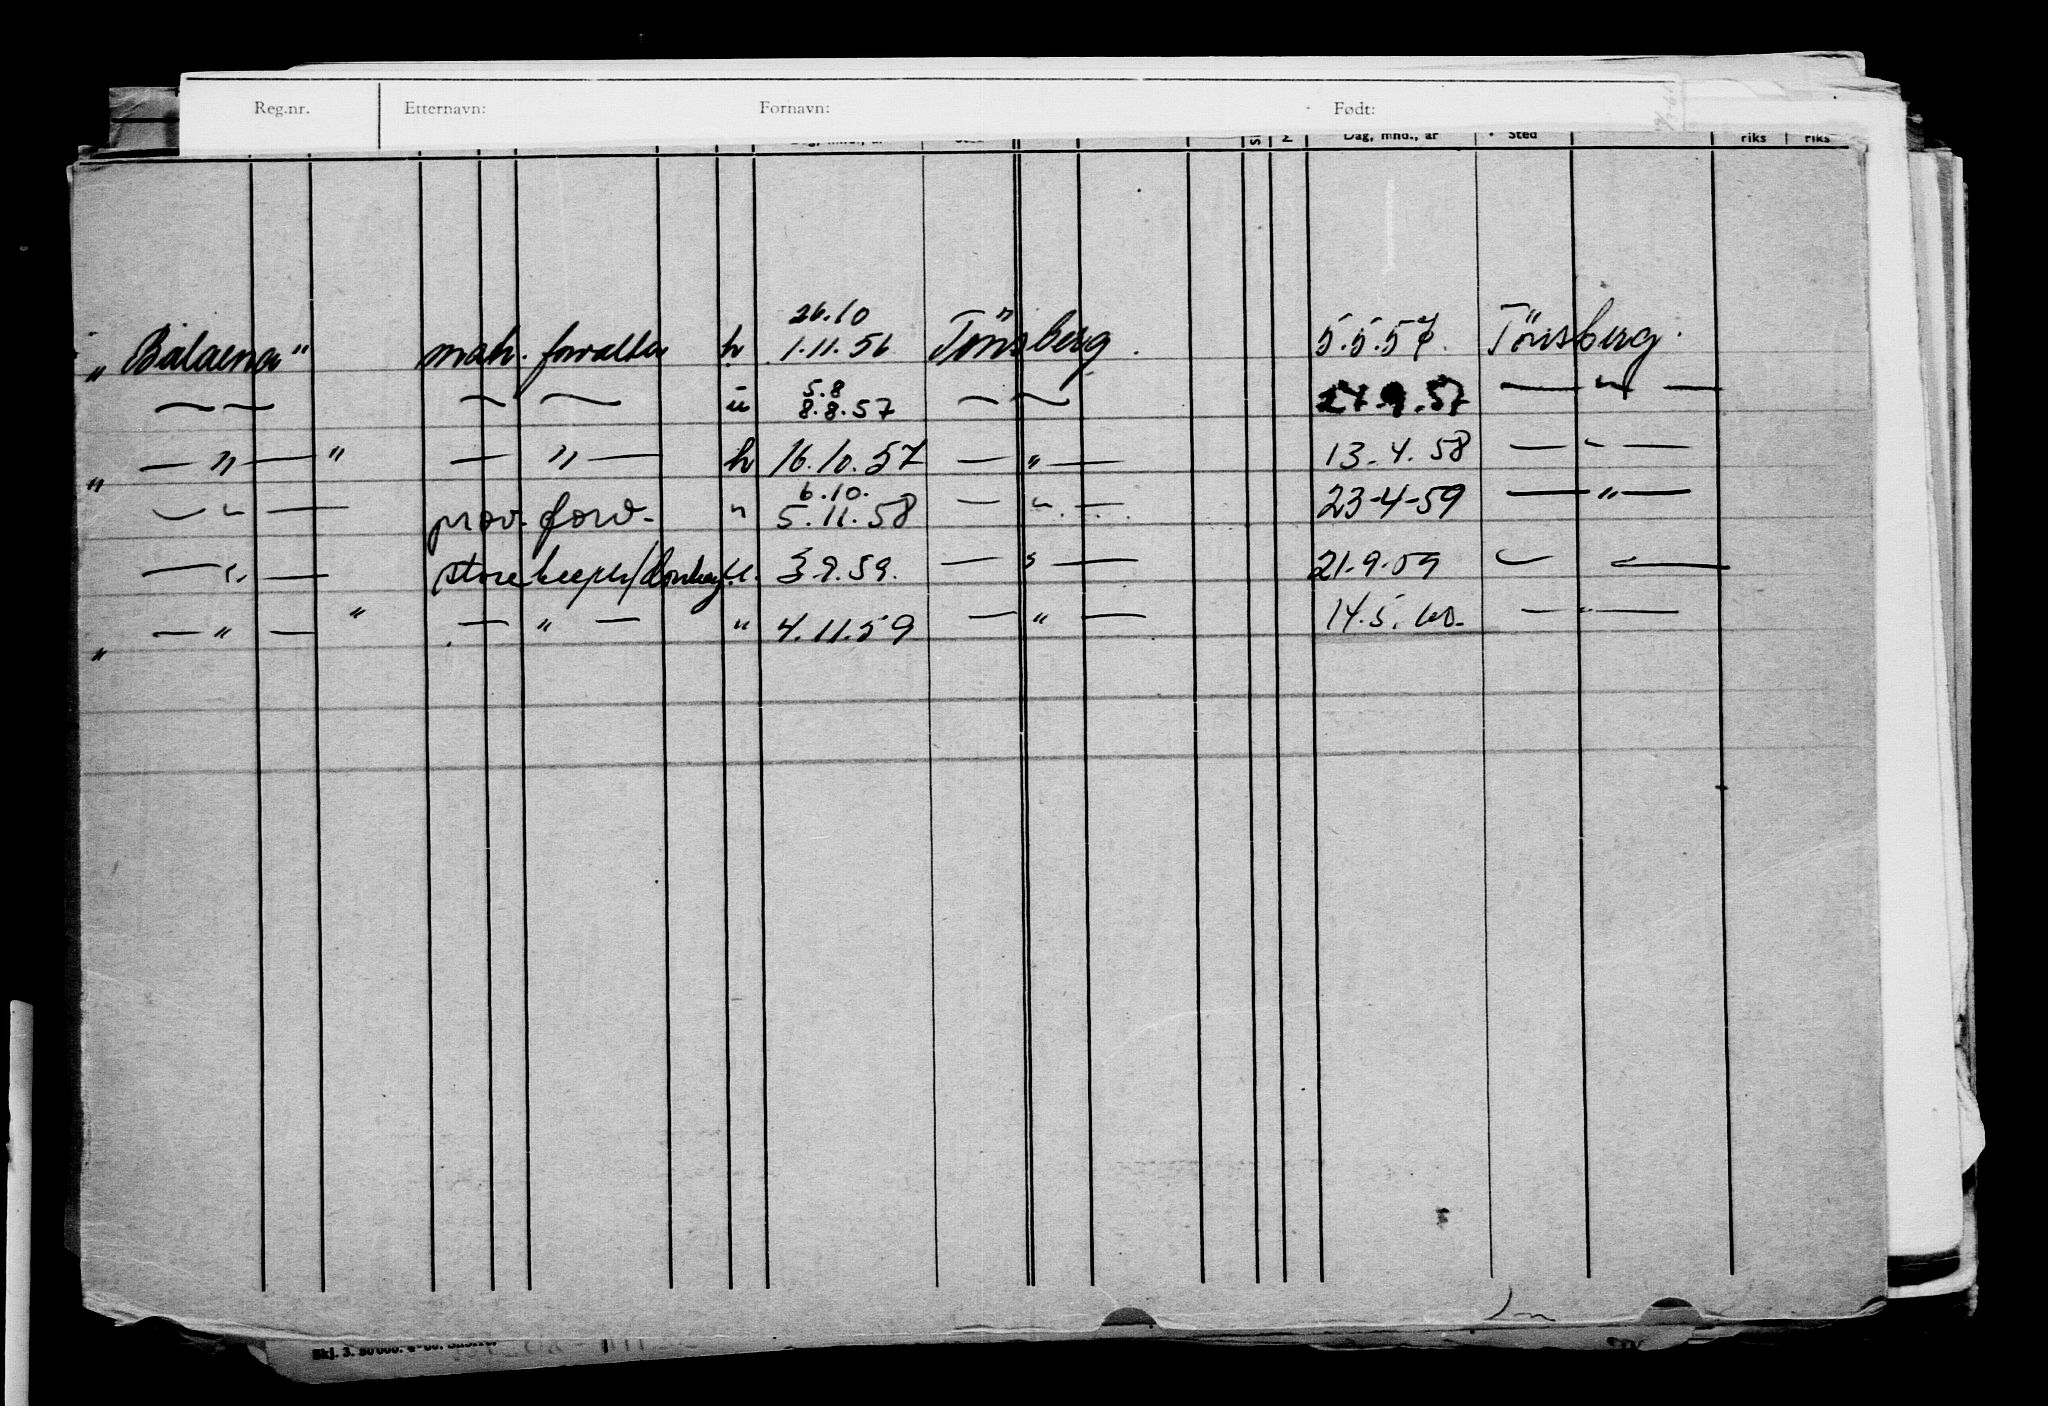 Reg.nr. Etternavn: Fornavn: Født:
Dag, mnd., år Sted riks riks
26.10
„Balaena" h 1.11.56 Tönsberg. 5.5.57. Tönsberg.
5.8
— — — — " 8.8.57 — — .57 — " —
— " — " — " — h 16.10.57 — " — 13.4.58 — " —
6.10.
— " — prov. forv. " 5.11.58 — " — 23-4-59 — " —
— " — storekeeper/ u. 3.9.59. — " — 21-9-59 — " —
„ — " — " — " — " 4.11.59 — " — 14.5.60. — " —
Skj. 3.